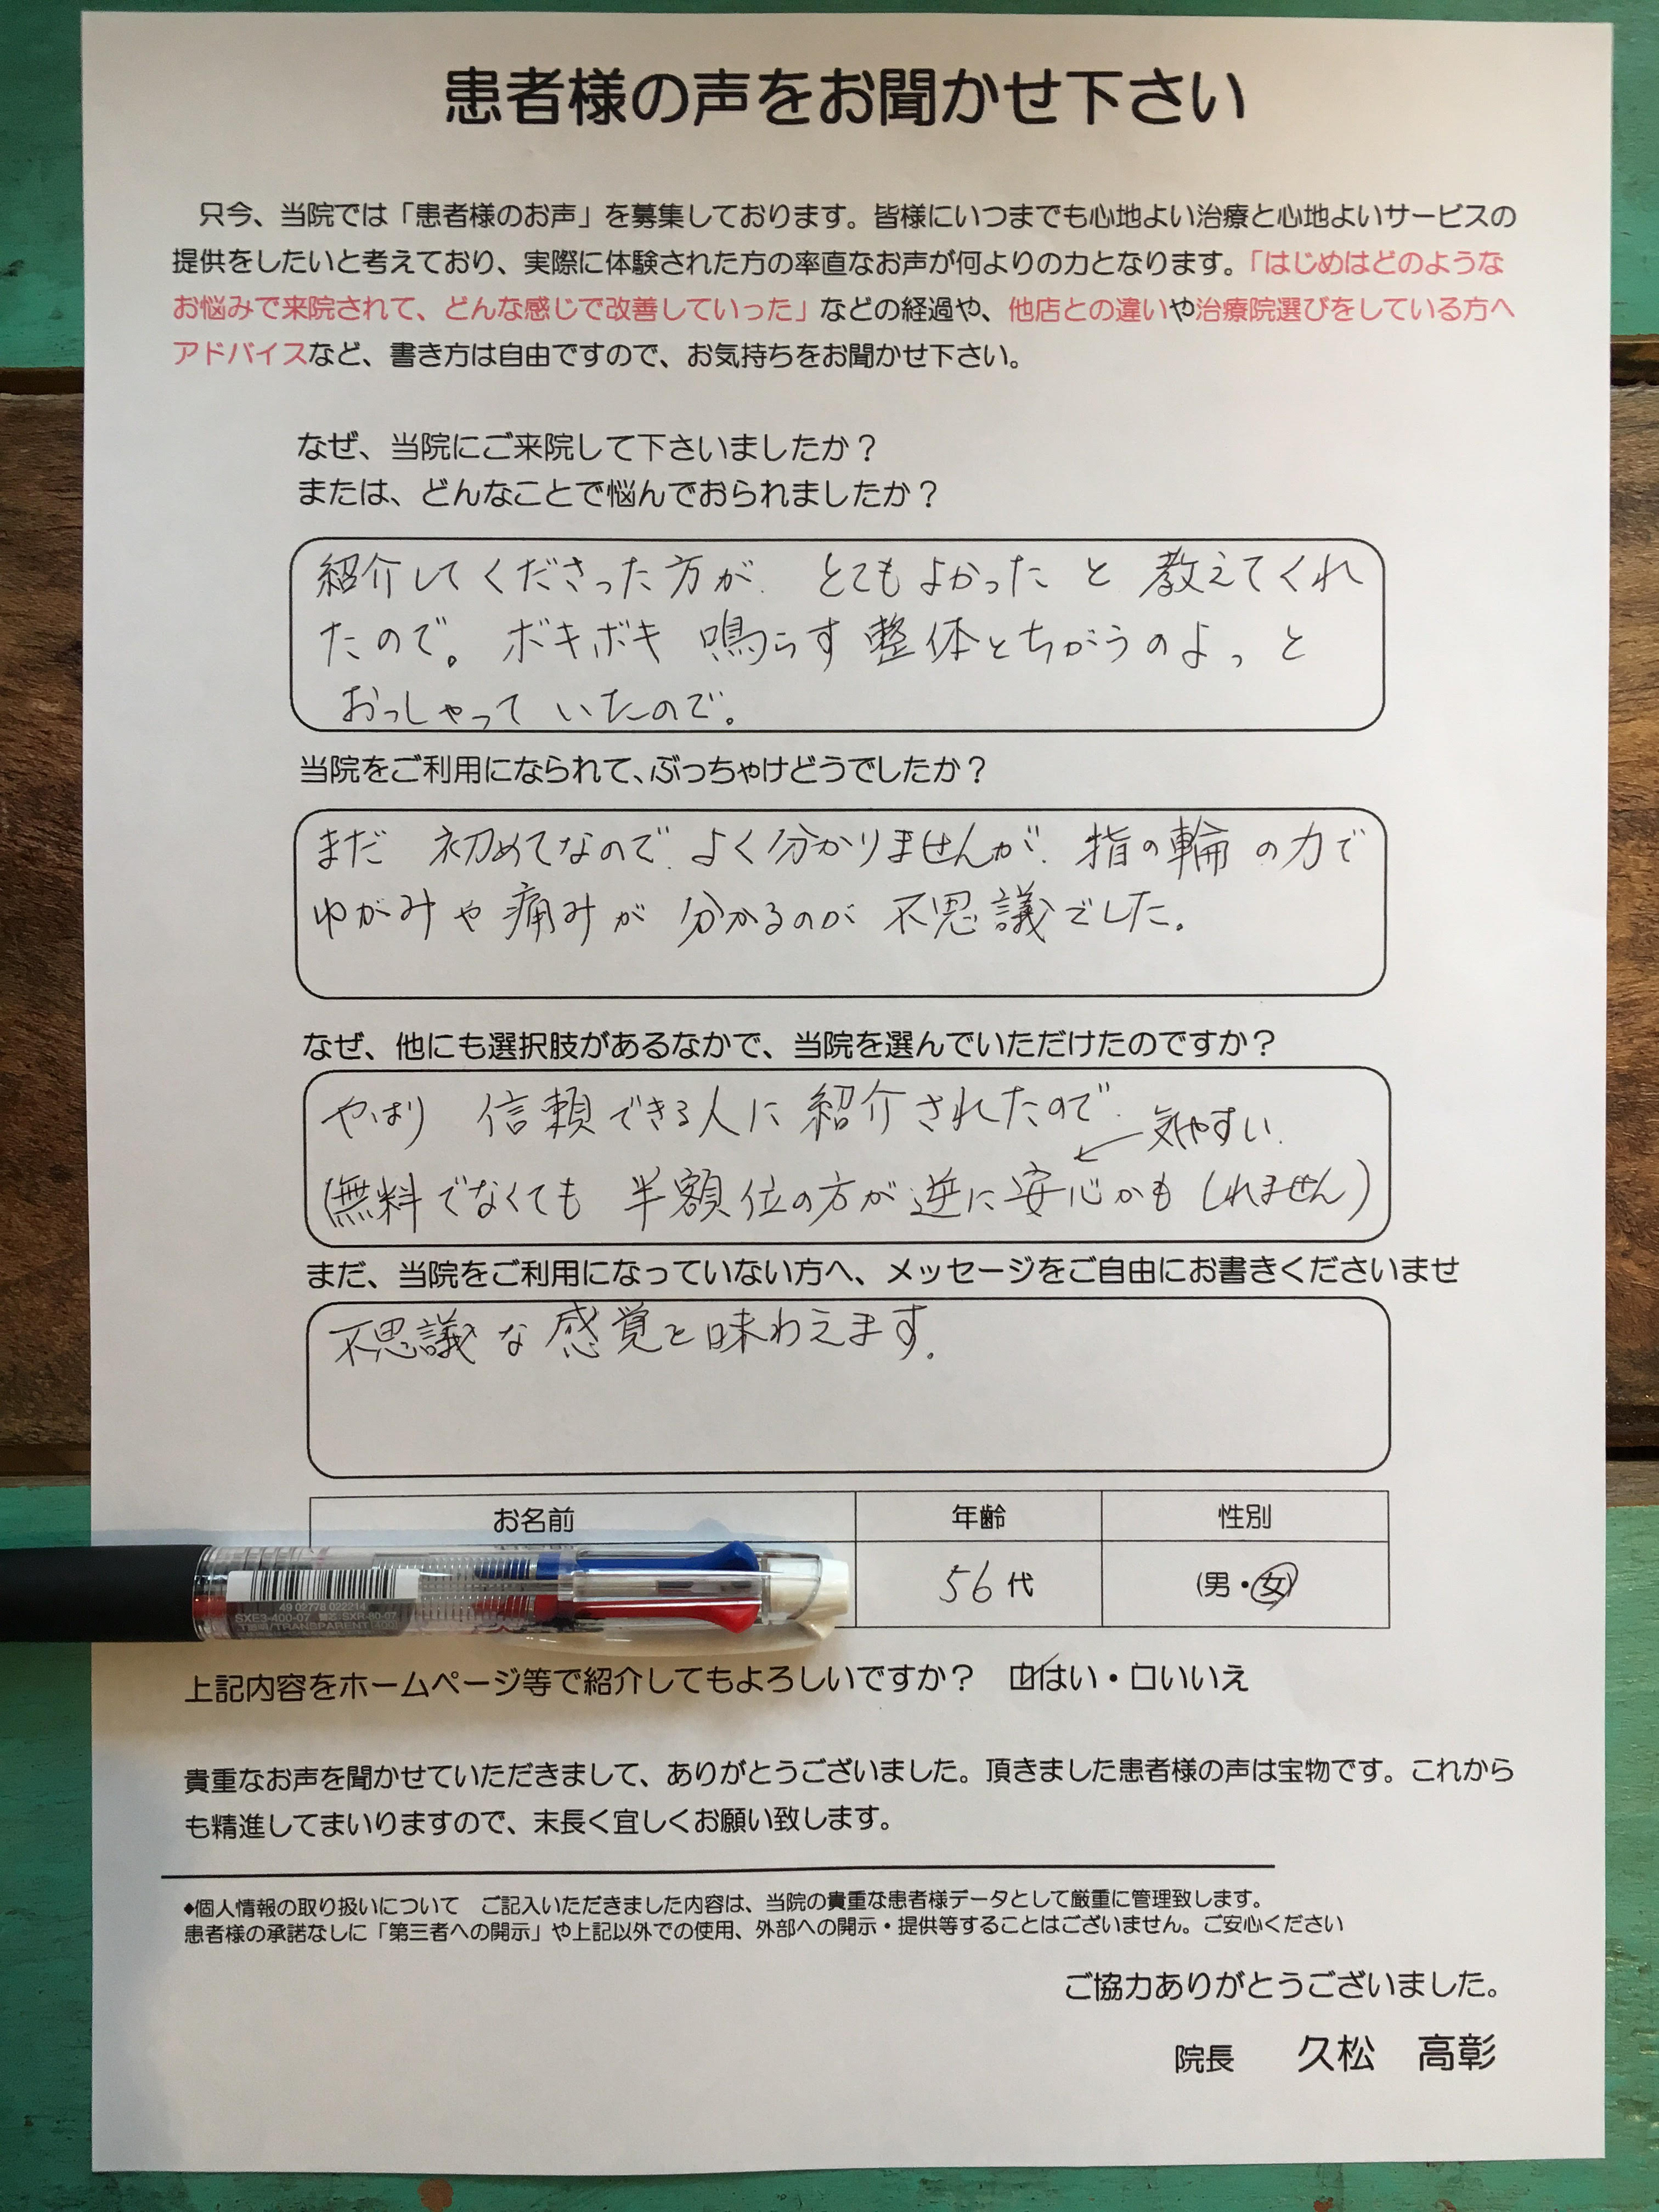 患者様の声をお聞かせ下さい
只今、当院では「患者様のお声」を募集しております。皆様にいつまでも心地よい治療と心地よいサービスの
提供をしたいと考えており、実際に体験された方の率直なお声が何よりの力となります。「はじめはどのような
お悩みで来院されて、どんな感じで改善していった」などの経過や、他店との違いや治療院選びをしている方へ
アドバイスなど、書き方は自由ですので、お気持ちをお聞かせ下さい。
なぜ、当院にご来院して下さいましたか？
または、どんなことで悩んでおられましたか？
紹介してくださった方が、とてもよかったと教えてくれ
たので。ボキボキ鳴らす整体とちがうのよっと
おっしゃっていたので。
当院をご利用になられて、ぶっちゃけどうでしたか？
まだ初めてなので、よく分かりませんが、指の輪の力で
ゆがみや痛みが分かるのが不思議でした。
なぜ、他にも選択肢があるなかで、当院を選んでいただけたのですか？
やはり信頼できる人に紹介されたので、
気やすい。
(無料でなくても半額位の方が逆に安心かもしれません)
まだ、当院をご利用になっていない方へ、メッセージをご自由にお書きくださいませ
不思議な感覚を味わえます。
お名前 年齢 性別
56代 (男・女)
49 02778 022214
SXE3-400-07 替芯:SXR-80-07
T透明/TRANSPARENT [400]
上記内容をホームページ等で紹介してもよろしいですか？ ☑はい・□いいえ
貴重なお声を聞かせていただきまして、ありがとうございました。頂きました患者様の声は宝物です。これから
も精進してまいりますので、末長く宜しくお願い致します。
◆個人情報の取り扱いについて ご記入いただきました内容は、当院の貴重な患者様データとして厳重に管理致します。
患者様の承諾なしに「第三者への開示」や上記以外での使用、外部への開示・提供等することはございません。ご安心ください
ご協力ありがとうございました。
院長 久松 高彰